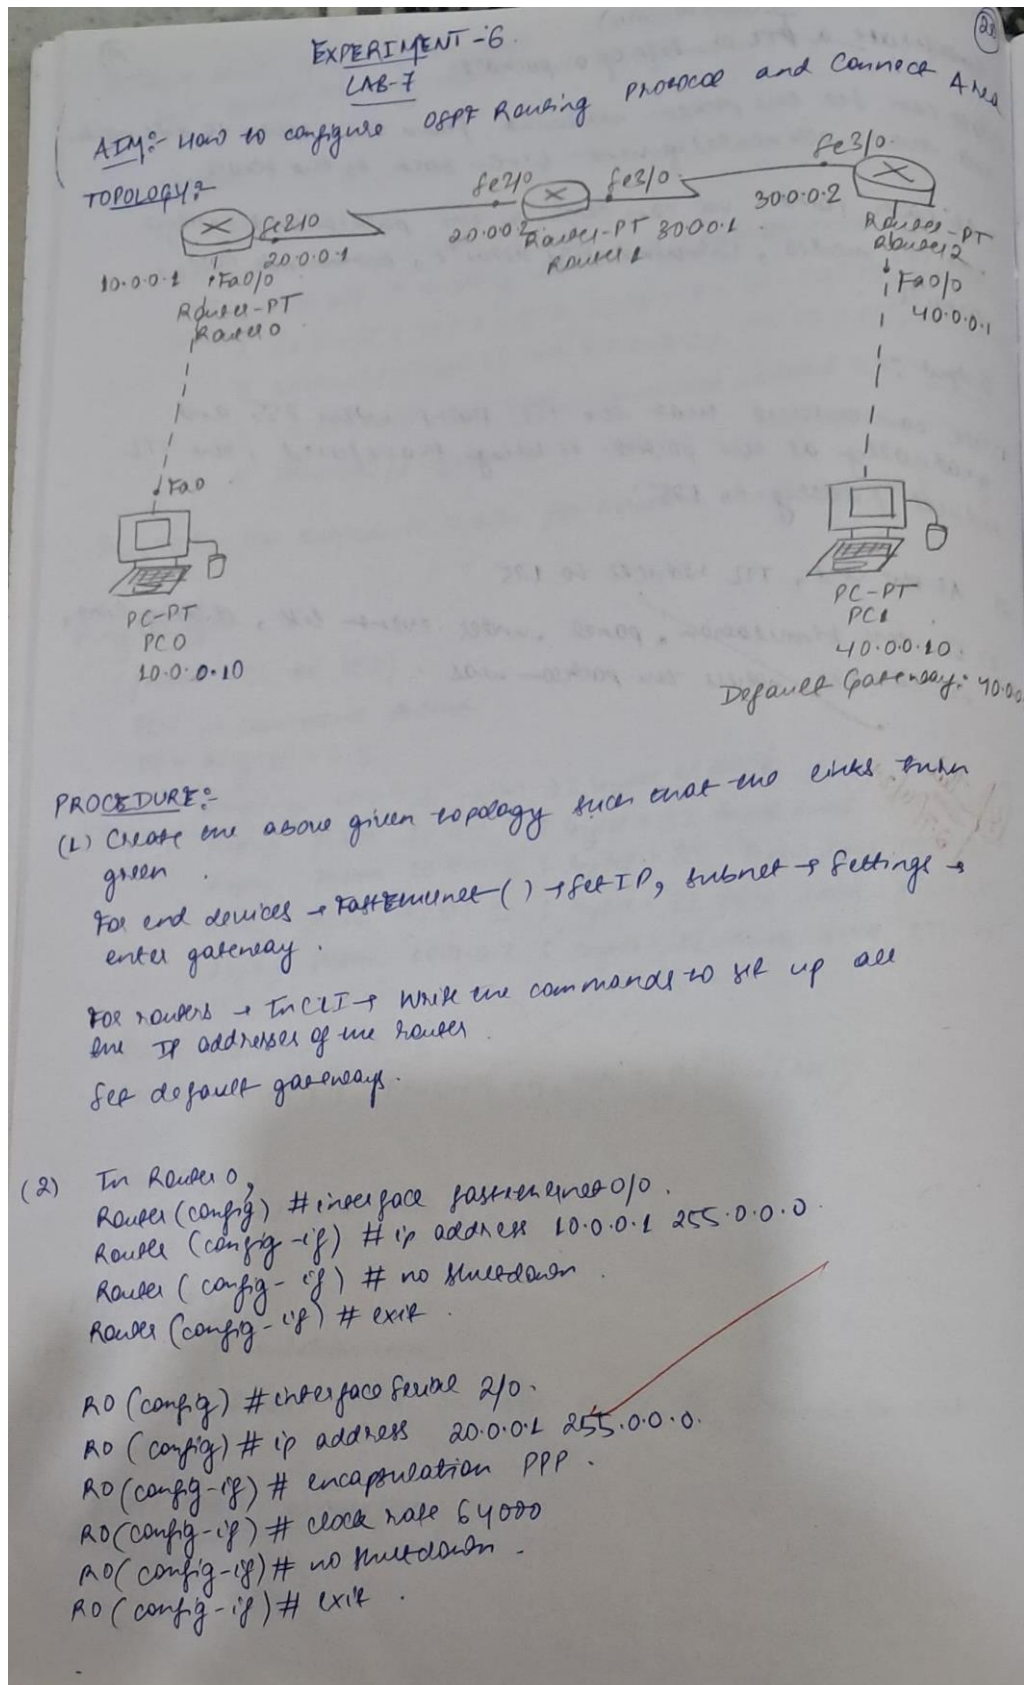 28
EXPERIMENT-6.
LAB-7
AIM:- How to configure OSPF Routing Protocol and Connect Area
TOPOLOGY:-
Se2/0
20.0.0.1
10.0.0.1
Fa0/0
Router-PT
Router0
Se2/0
20.0.0.2
Se3/0
30.0.0.1
Router-PT
Router1
Se3/0
30.0.0.2
Router-PT
Router2
Fa0/0
40.0.0.1
Fa0
PC-PT
PC0
10.0.0.10
PC-PT
PC1
40.0.0.10
Default Gateway: 40.0.0
PROCEDURE:-
(1) Create the above given topology such that the links turn
green.
For end devices → FastEthernet() → Set IP, subnet → Settings →
enter gateway.
For routers → In CLI → Write the commands to set up all
the IP addresses of the router.
Set default gateways.
(2) In Router 0,
Router(config) # interface fastethernet 0/0.
Router (config-if) # ip address 10.0.0.1 255.0.0.0.
Router (config-if) # no shutdown.
Router (config-if) # exit.
R0 (config) # interface Serial 2/0.
R0 (config) # ip address 20.0.0.1 255.0.0.0.
R0 (config-if) # encapsulation PPP.
R0 (config-if) # clock rate 64000
R0 (config-if) # no shutdown.
R0 (config-if) # exit.